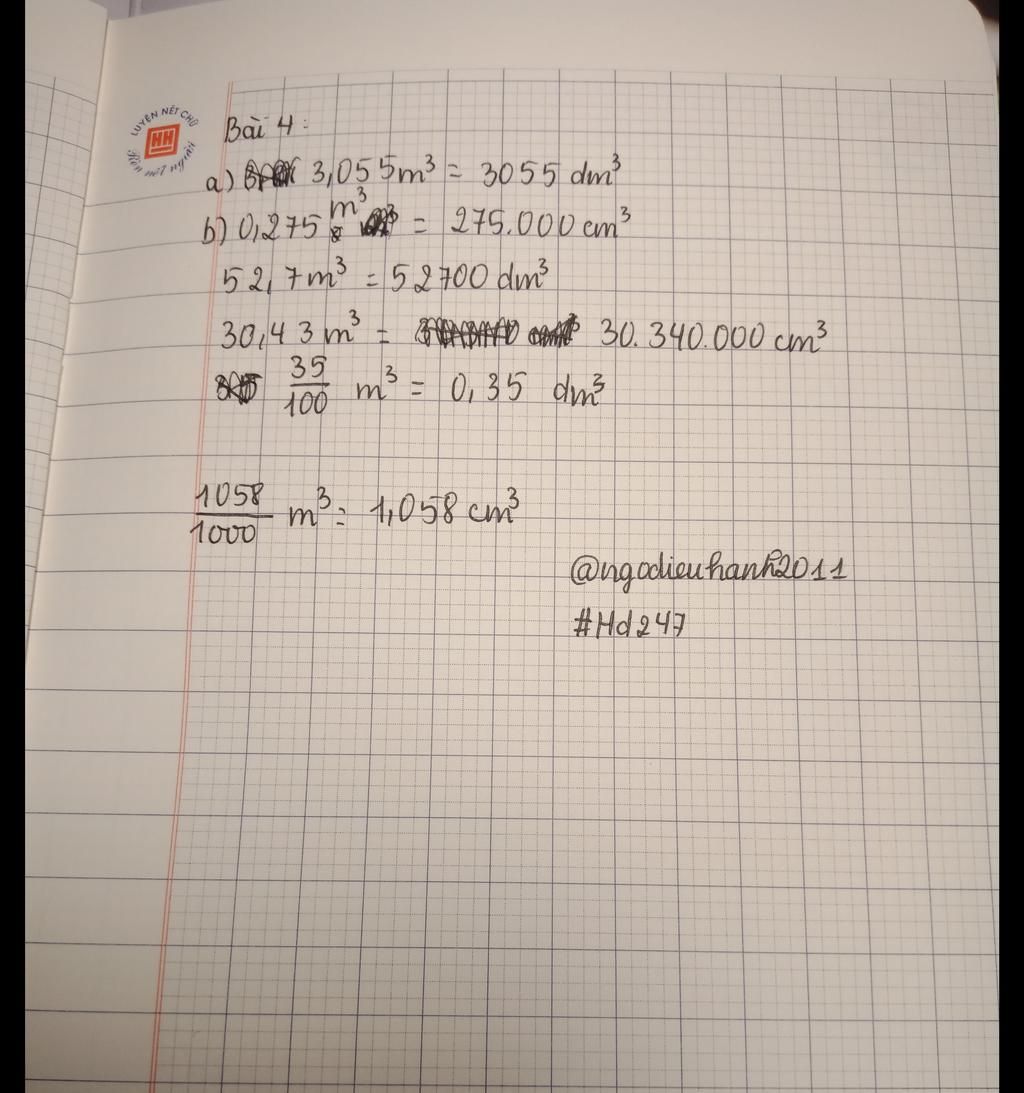 LUYỆN NÉT CHỮ
HH
Rèn nết người
Bài 4:
a) 3,055m³ = 3055 dm³
b) 0,275 m³ = 275.000 cm³
52,7m³ = 52700 dm³
30,43 m³ = 30.340.000 cm³
35/100 m³ = 0,35 dm³
1058/1000 m³ = 1,058 cm³
@ngodieuhanh2011
#Hd247